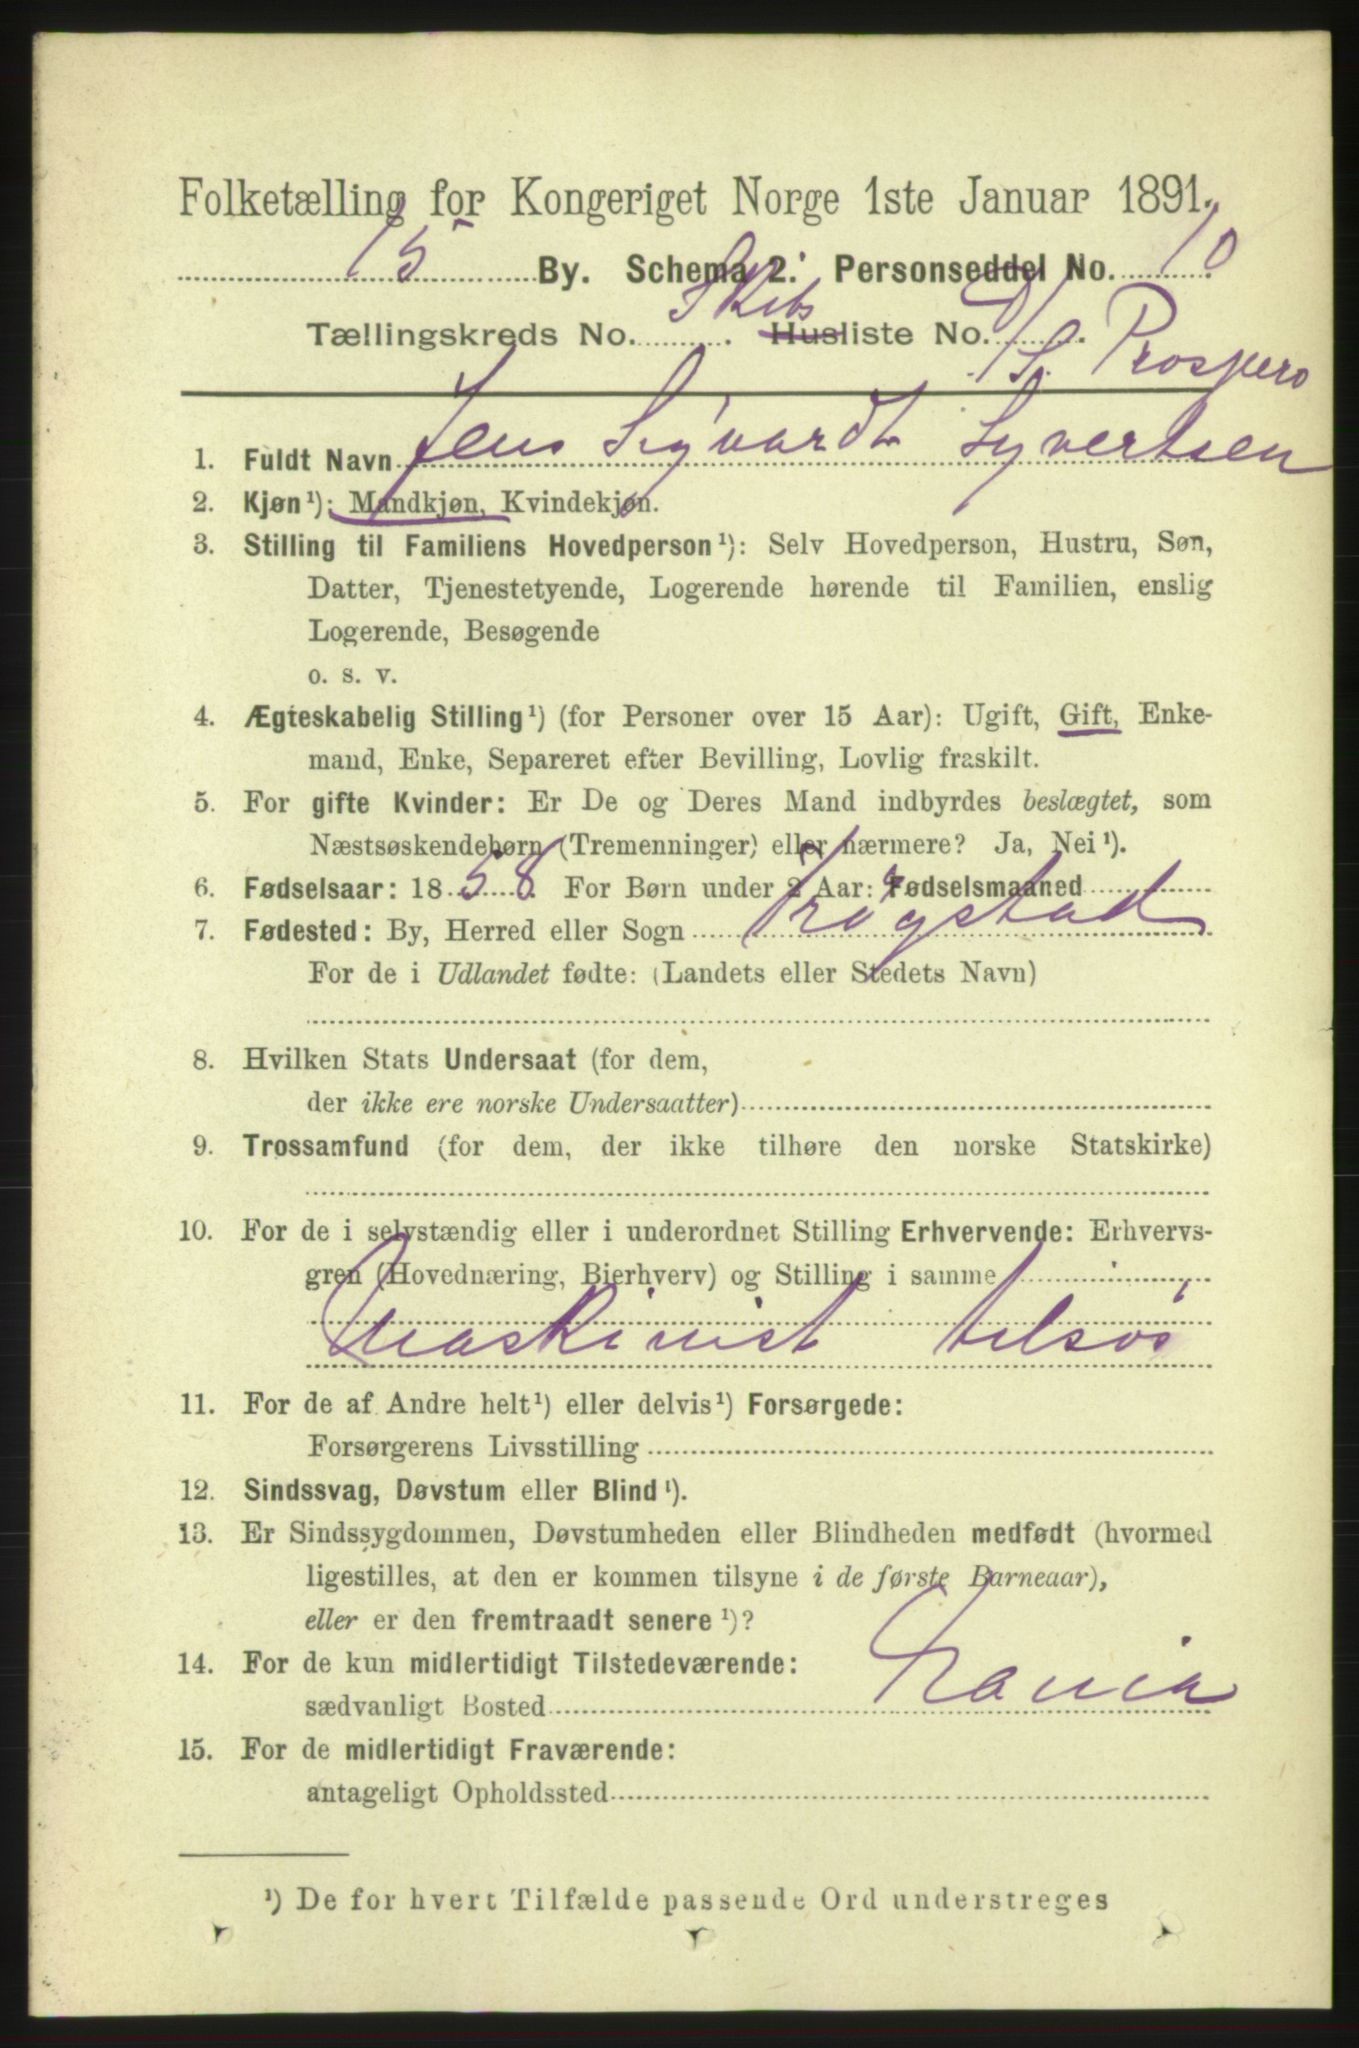 Folketælling for Kongeriget Norge 1ste Januar 1891.
15 By. Schema 2. Personseddel No. 10
Tællingskreds No. . Skibs Husliste No. D/S. Prospero
1. Fuldt Navn Jens Sigvardt Syvertsen
2. Kjøn¹): Mandkjøn, Kvindekjøn.
3. Stilling til Familiens Hovedperson¹): Selv Hovedperson, Hustru, Søn,
Datter, Tjenestetyende, Logerende hørende til Familien, enslig
Logerende, Besøgende
o. s. v.
4. Ægteskabelig Stilling¹) (for Personer over 15 Aar): Ugift, Gift, Enke-
mand, Enke, Separeret efter Bevilling, Lovlig fraskilt.
5. For gifte Kvinder: Er De og Deres Mand indbyrdes beslægtet, som
Næstsøskendebørn (Tremenninger) eller nærmere? Ja, Nei¹).
6. Fødselsaar: 1858. For Børn under 2 Aar: Fødselsmaaned
7. Fødested: By, Herred eller Sogn Trøgstad
For de i Udlandet fødte: (Landets eller Stedets Navn)
8. Hvilken Stats Undersaat (for dem,
der ikke ere norske Undersaatter)
9. Trossamfund (for dem, der ikke tilhøre den norske Statskirke)
10. For de i selvstændig eller i underordnet Stilling Erhvervende: Erhvervs-
gren (Hovednæring, Bierhverv) og Stilling i samme
Maskinist tilsøs
11. For de af Andre helt¹) eller delvis¹) Forsørgede:
Forsørgerens Livsstilling
12. Sindssvag, Døvstum eller Blind¹).
13. Er Sindssygdommen, Døvstumheden eller Blindheden medfødt (hvormed
ligestilles, at den er kommen tilsyne i de første Barneaar),
eller er den fremtraadt senere¹)?
14. For de kun midlertidigt Tilstedeværende:
sædvanligt Bosted
15. For de midlertidigt Fraværende:
antageligt Opholdssted
¹) De for hvert Tilfælde passende Ord understreges